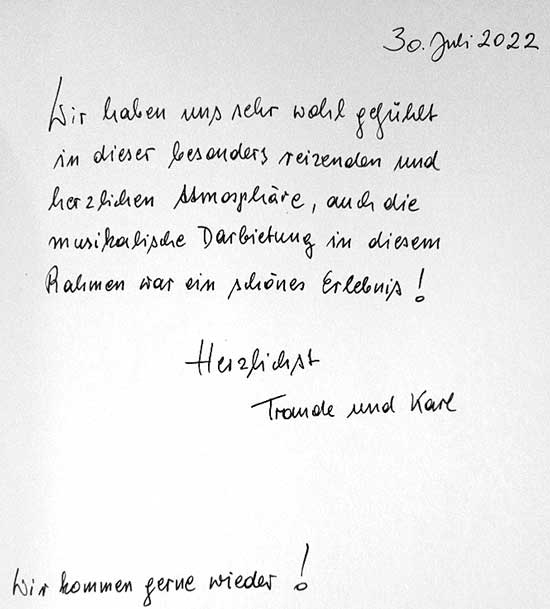 30. Juli 2022
Wir haben uns sehr wohl gefühlt
in dieser besonders reizenden und
herzlichen Atmosphäre, auch die
musikalische Darbietung in diesem
Rahmen war ein schönes Erlebnis!
Herzlichst
Traude und Karl
Wir kommen gerne wieder!